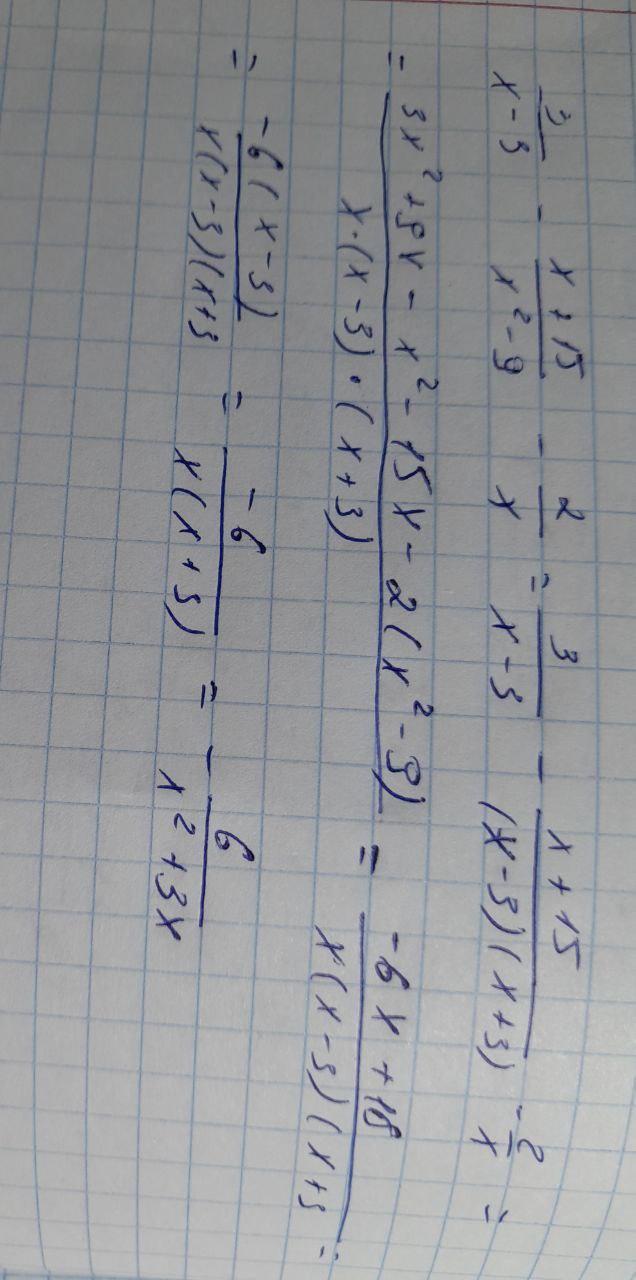 3/(x-3) - (x+15)/(x²-9) - 2/x = 3/(x-3) - (x+15)/((x-3)(x+3)) - 2/x =
= (3x²+9x-x²-15x-2(x²-9))/(x·(x-3)·(x+3)) = (-6x+18)/(x(x-3)(x+3 =
= (-6(x-3))/(x(x-3)(x+3 = (-6)/(x(x+3)) = - 6/(x²+3x)